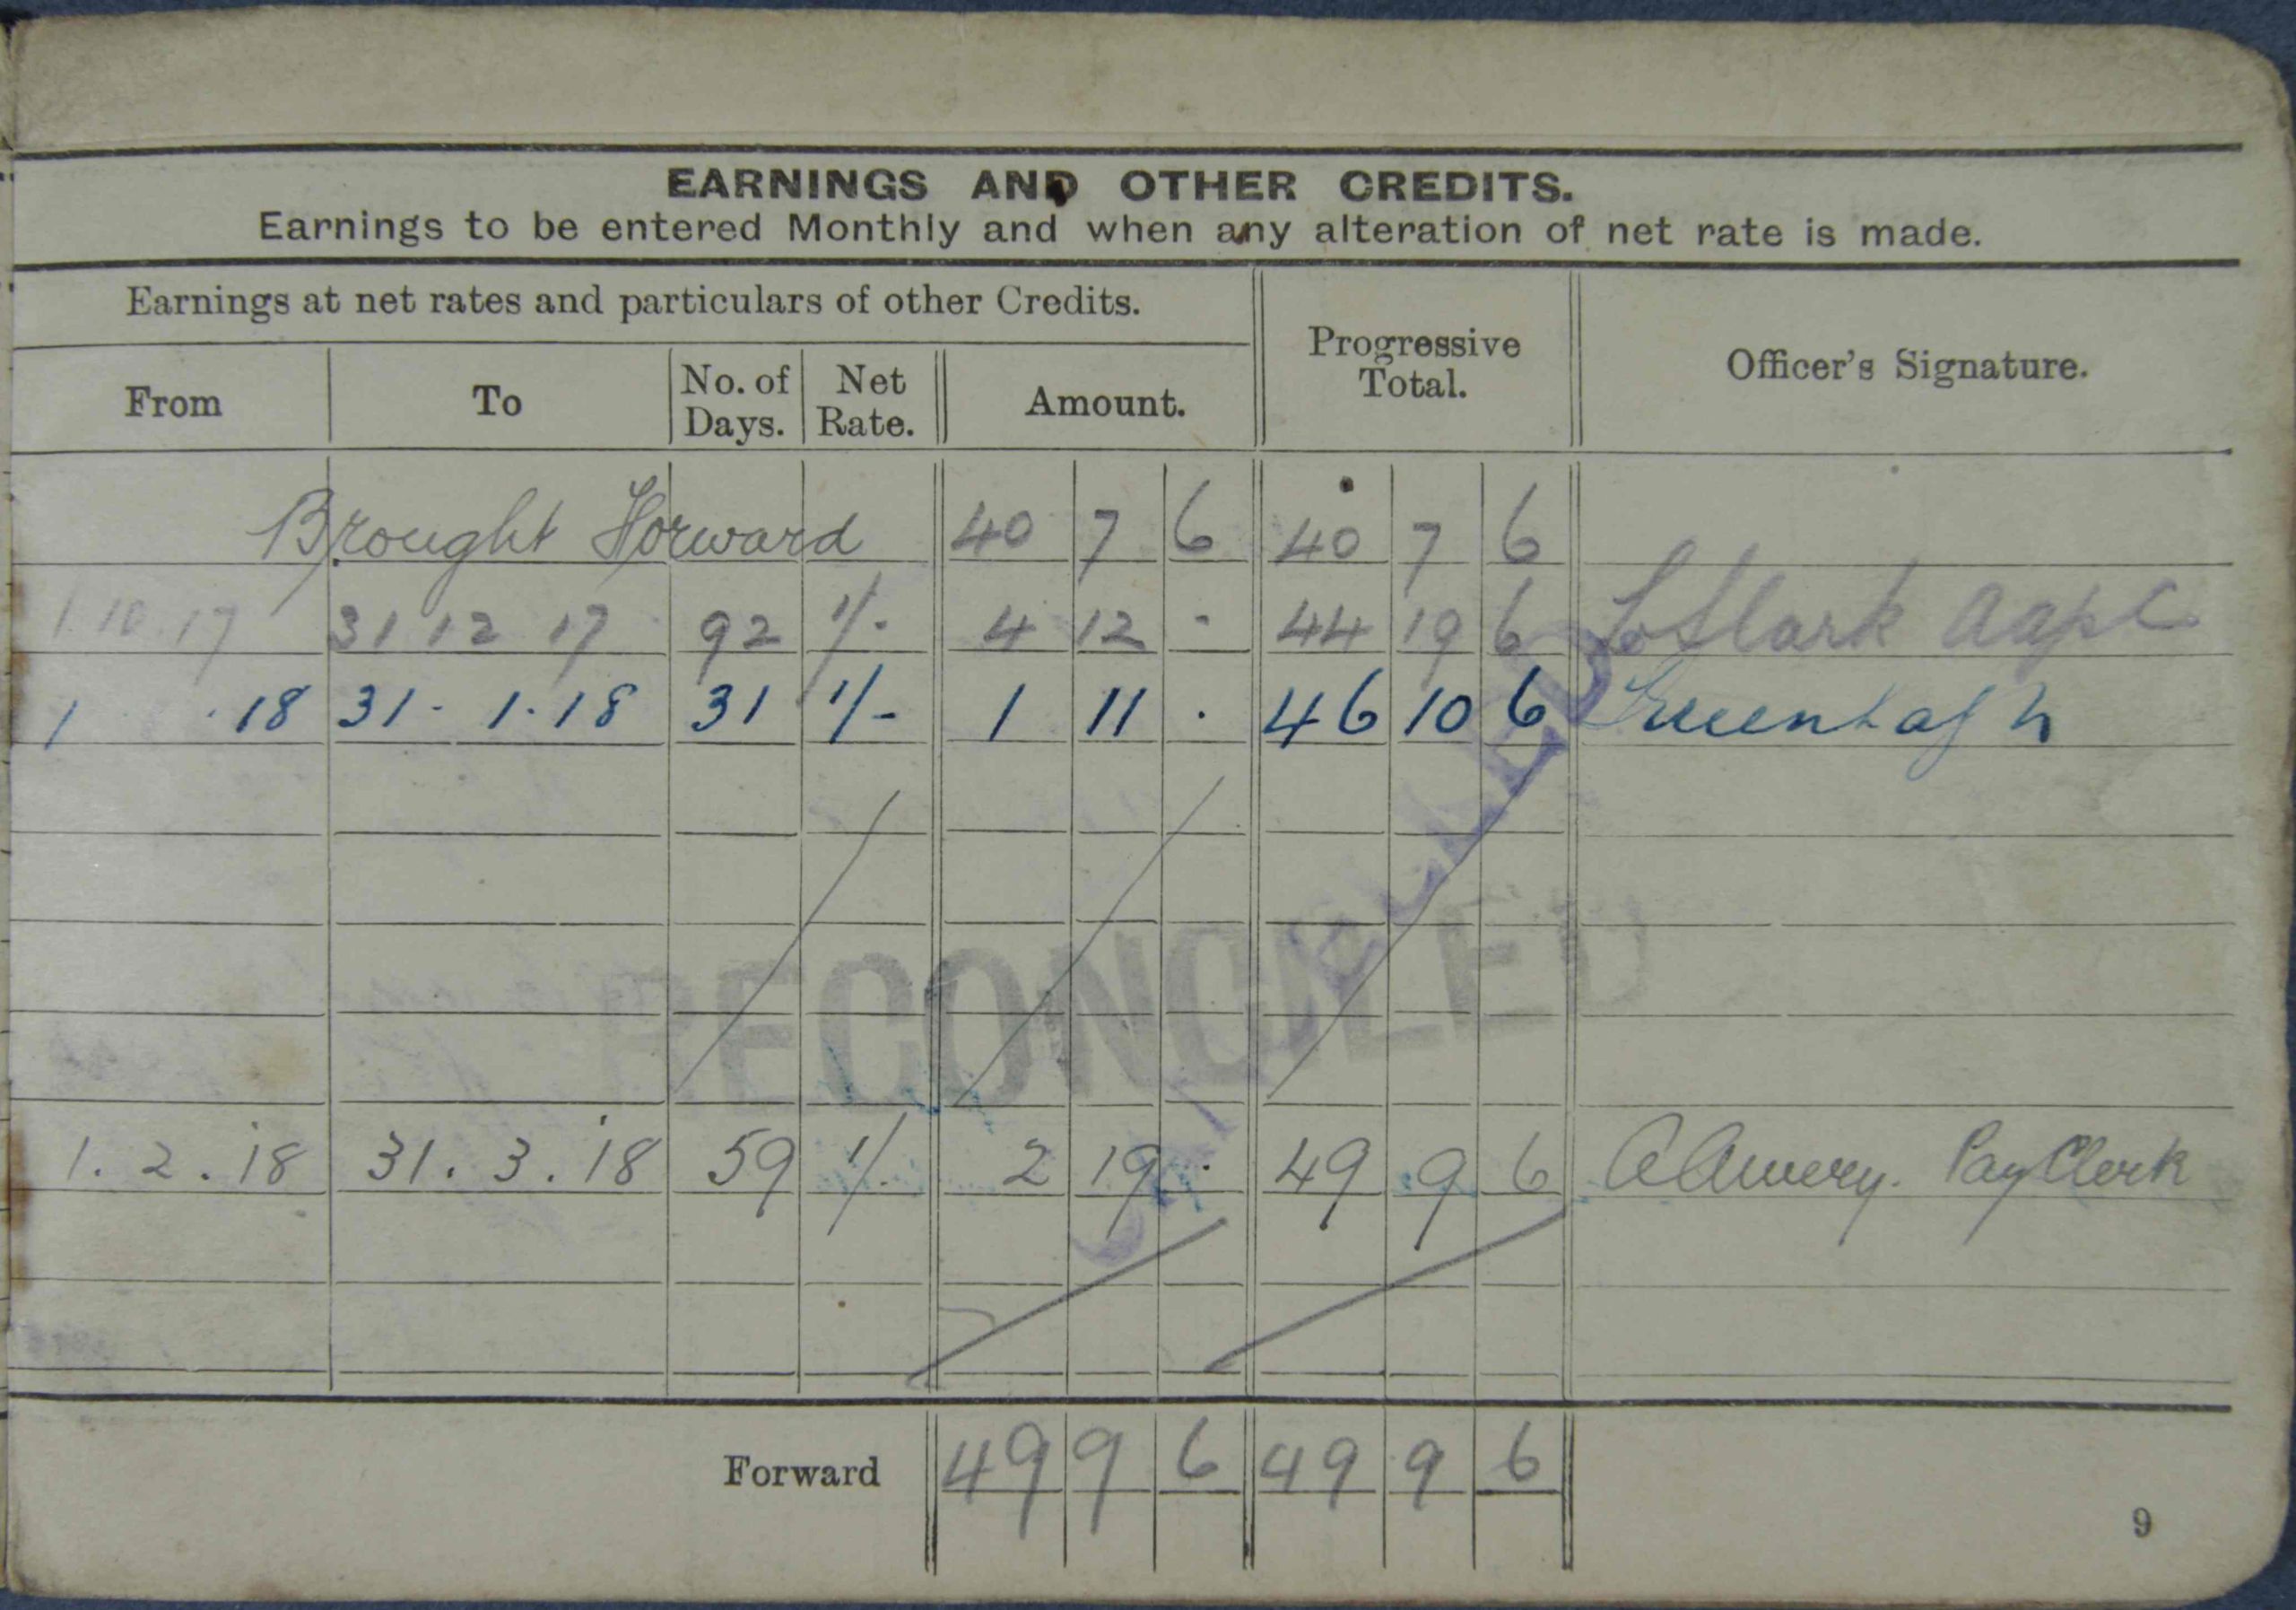 EARNINGS AND OTHER CREDITS.
Earnings to be entered Monthly and when any alteration of net rate is made.
Earnings at net rates and particulars of other Credits.
Progressive Total.
Officer's Signature.
From To No. of Days. Net Rate. Amount.
Brought Forward 40 7 6 40 7 6
1.10.17 31 12 17 92 1/- 4 12 - 44 19 6 Clark
1 . 18 31. 1.18 31 1/- 1 11 . 46 10 6
RECONCILED
1.2.18 31.3.18 59 1/. 2 19 . 49 9 6 Pay Clerk
Forward 49 9 6 49 9 6
9